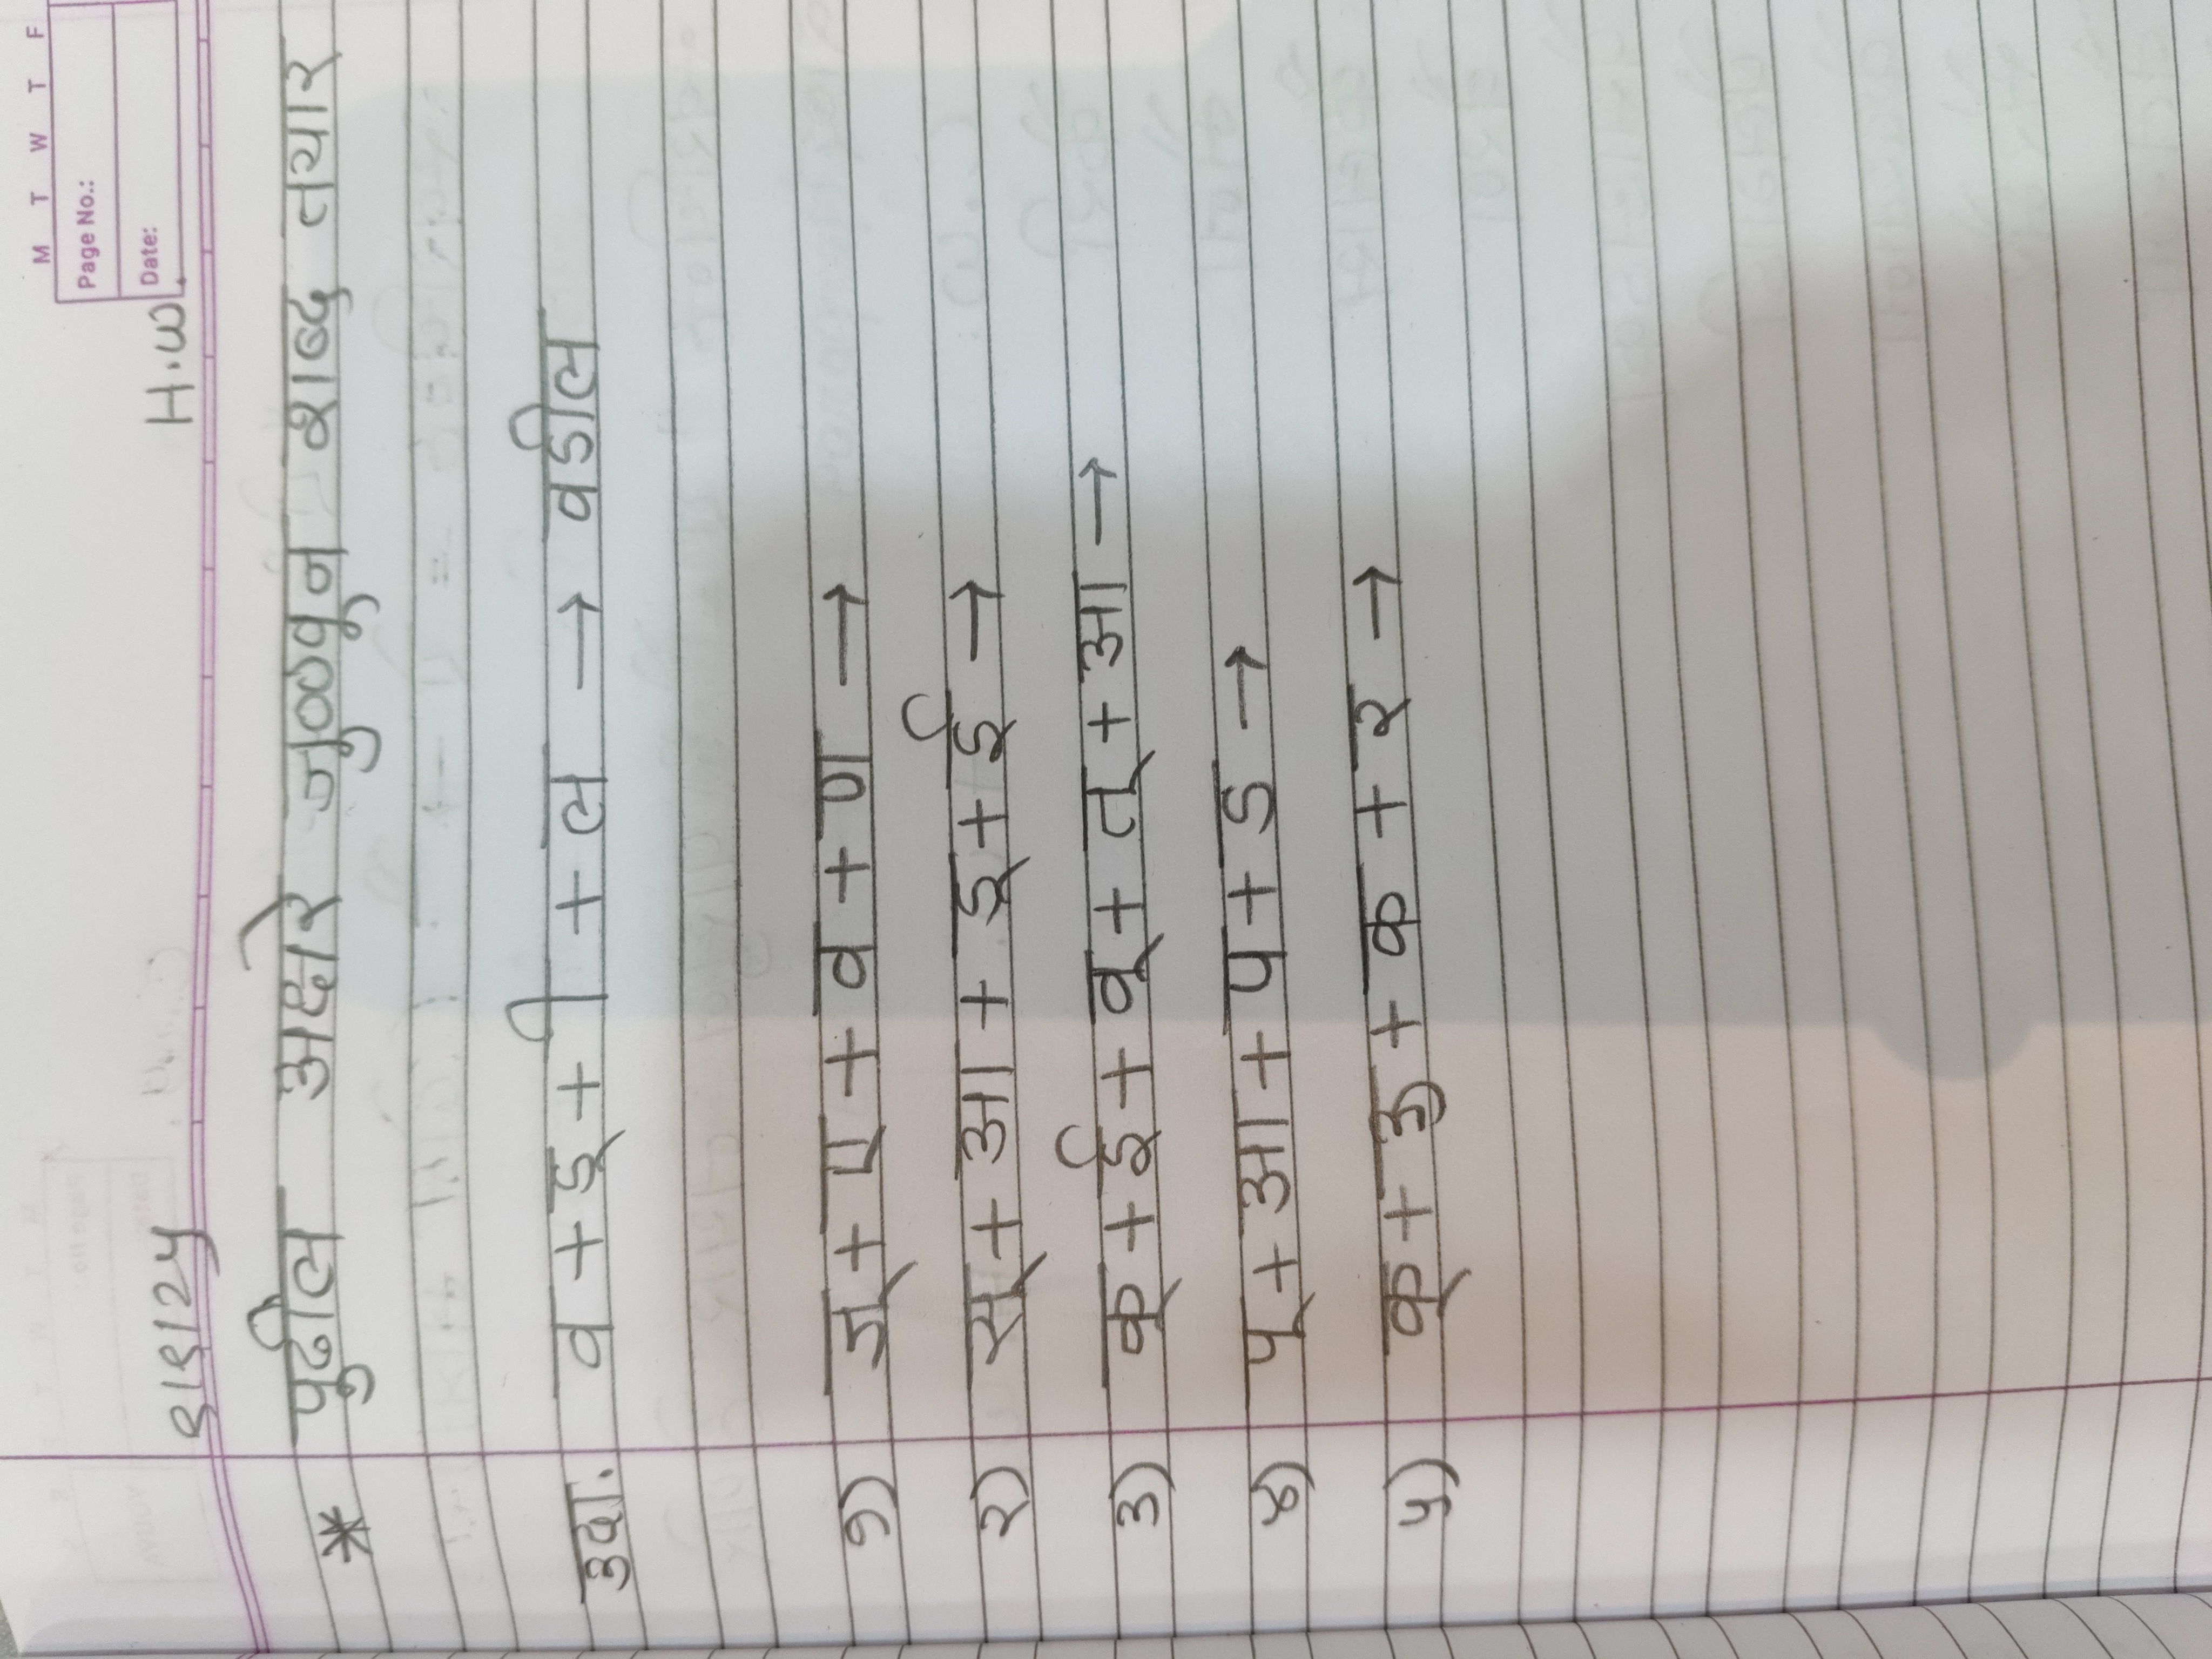 M T W T F
Page No.:
Date:
९।९।२५ H.W.
* पुढील अक्षरे जुळवून शब्द तयार
उदा. व + ड् + ी + ल → वडील
१) ज् + ए + व + ण →
२) स् + आ + ड् + ई →
३) क् + ई + व् + त् + आ →
४) प् + आ + प + ड →
५) क् + उ + क + र →